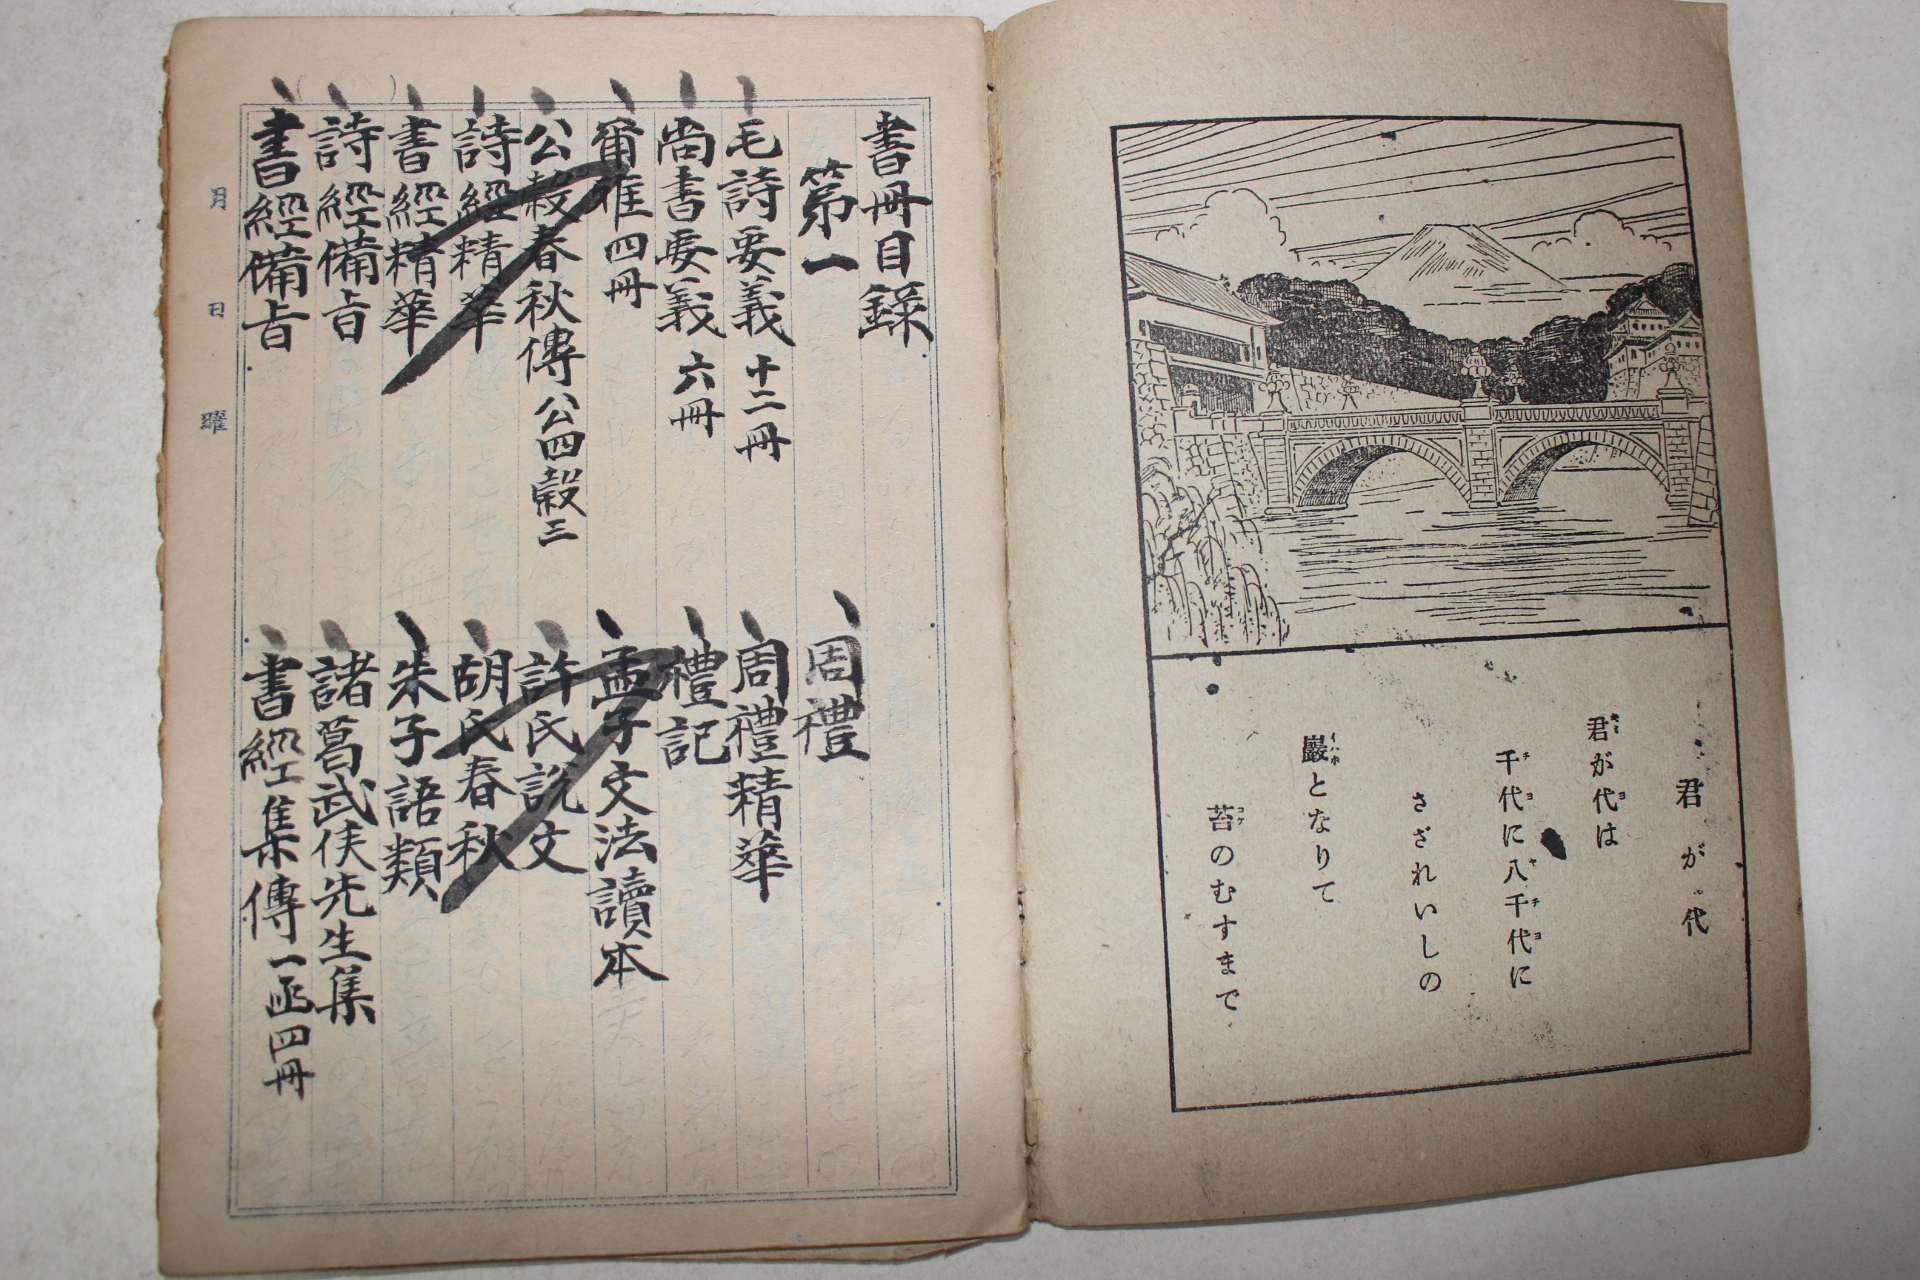 君が代
君が代は
千代に八千代に
さざれいしの
巖となりて
苔のむすまで
書冊目錄
第一
毛詩要義 十二冊
尚書要義 六冊
爾雅四冊
公穀春秋傳 公四穀三
詩經精華
書經精華
詩經備旨
書經備旨
周禮
周禮精華
禮記
孟子文法讀本
許氏說文
胡氏春秋
朱子語類
諸葛武侯先生集
書經集傳 一函四冊
月 日 曜